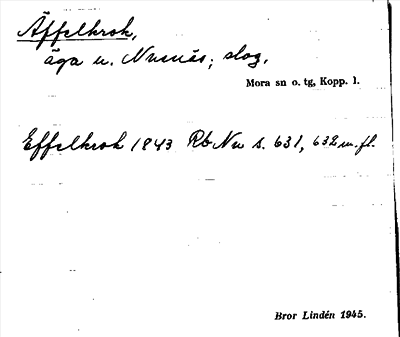 Äffelkrok,
äga u. Nusnäs; slog.
Mora sn o. tg, Kopp. l.
Effelkrok 1843 Rb Nu s. 631, 632 m. fl.
Bror Lindén 1945.